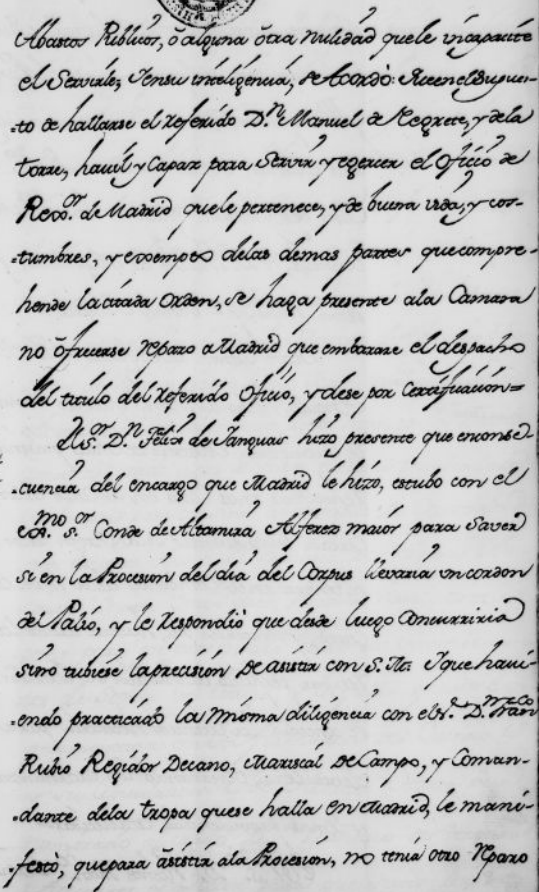 Abastos Publicos, ò alguna òtra nulidad que le incapacite
el Servirle; Y en su inteligencia, se Acordò: Que en el Supues-
-to de hallarse el referido D.n Manuel de Negrete, y de la
torre, havil y Capaz para Servir y egercer el Oficio de
Rexo.or de Madrid que le pertenece, y de buena vida, y cos-
-tumbres, y exempto delas demas partes que compre-
hende la citada Orden, se haga presente ala Camara
no ôfrecerse reparo a Madrid que embarase el despacho
del titulo del referido Oficio, y dese por Certificacion=
El S.or D.n Felix de Yanguas hizo presente que en conse-
-cuencia del encargo que Madrid le hizo, estubo con el
ex.mo s.or Conde de Altamira Alferez maior para Saver
si en la Procesion del dia del Corpus llevaria un cordon
del Palio, y le respondiò que desde luego Concurriria
sino tubiese la precision de asistir con S. M. Y que havi-
-endo practicado la misma diligencia con el s.r D.n Fran.co
Rubio Regidor Decano, Mariscal de Campo, y Coman-
-dante dela tropa que se halla en Madrid, le mani-
-festò, que para asistir ala Procesion, no tenia otro reparo